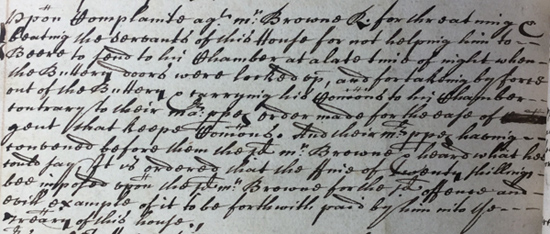 Upon Complainte agt mr. Browne R. for threatning &
beating the servants of this House for not helping him to
Beere to send to his Chamber at a late time of night when
the Buttery doors were locked up, and for taking by force
out of the Buttery & carrying his Comons to his Chamber
contrary to their Mapps order made for the ease of
gent that keepe Comons, And their Mrpps having
convened before them the sd mr. Browne & heard what hee
could say It is ordered that the fine of twenty shillings
bee imposed upon the sd mr. Browne for the sd offence and
evill example of it to be forthwith paid by him into the
Treary of this house.